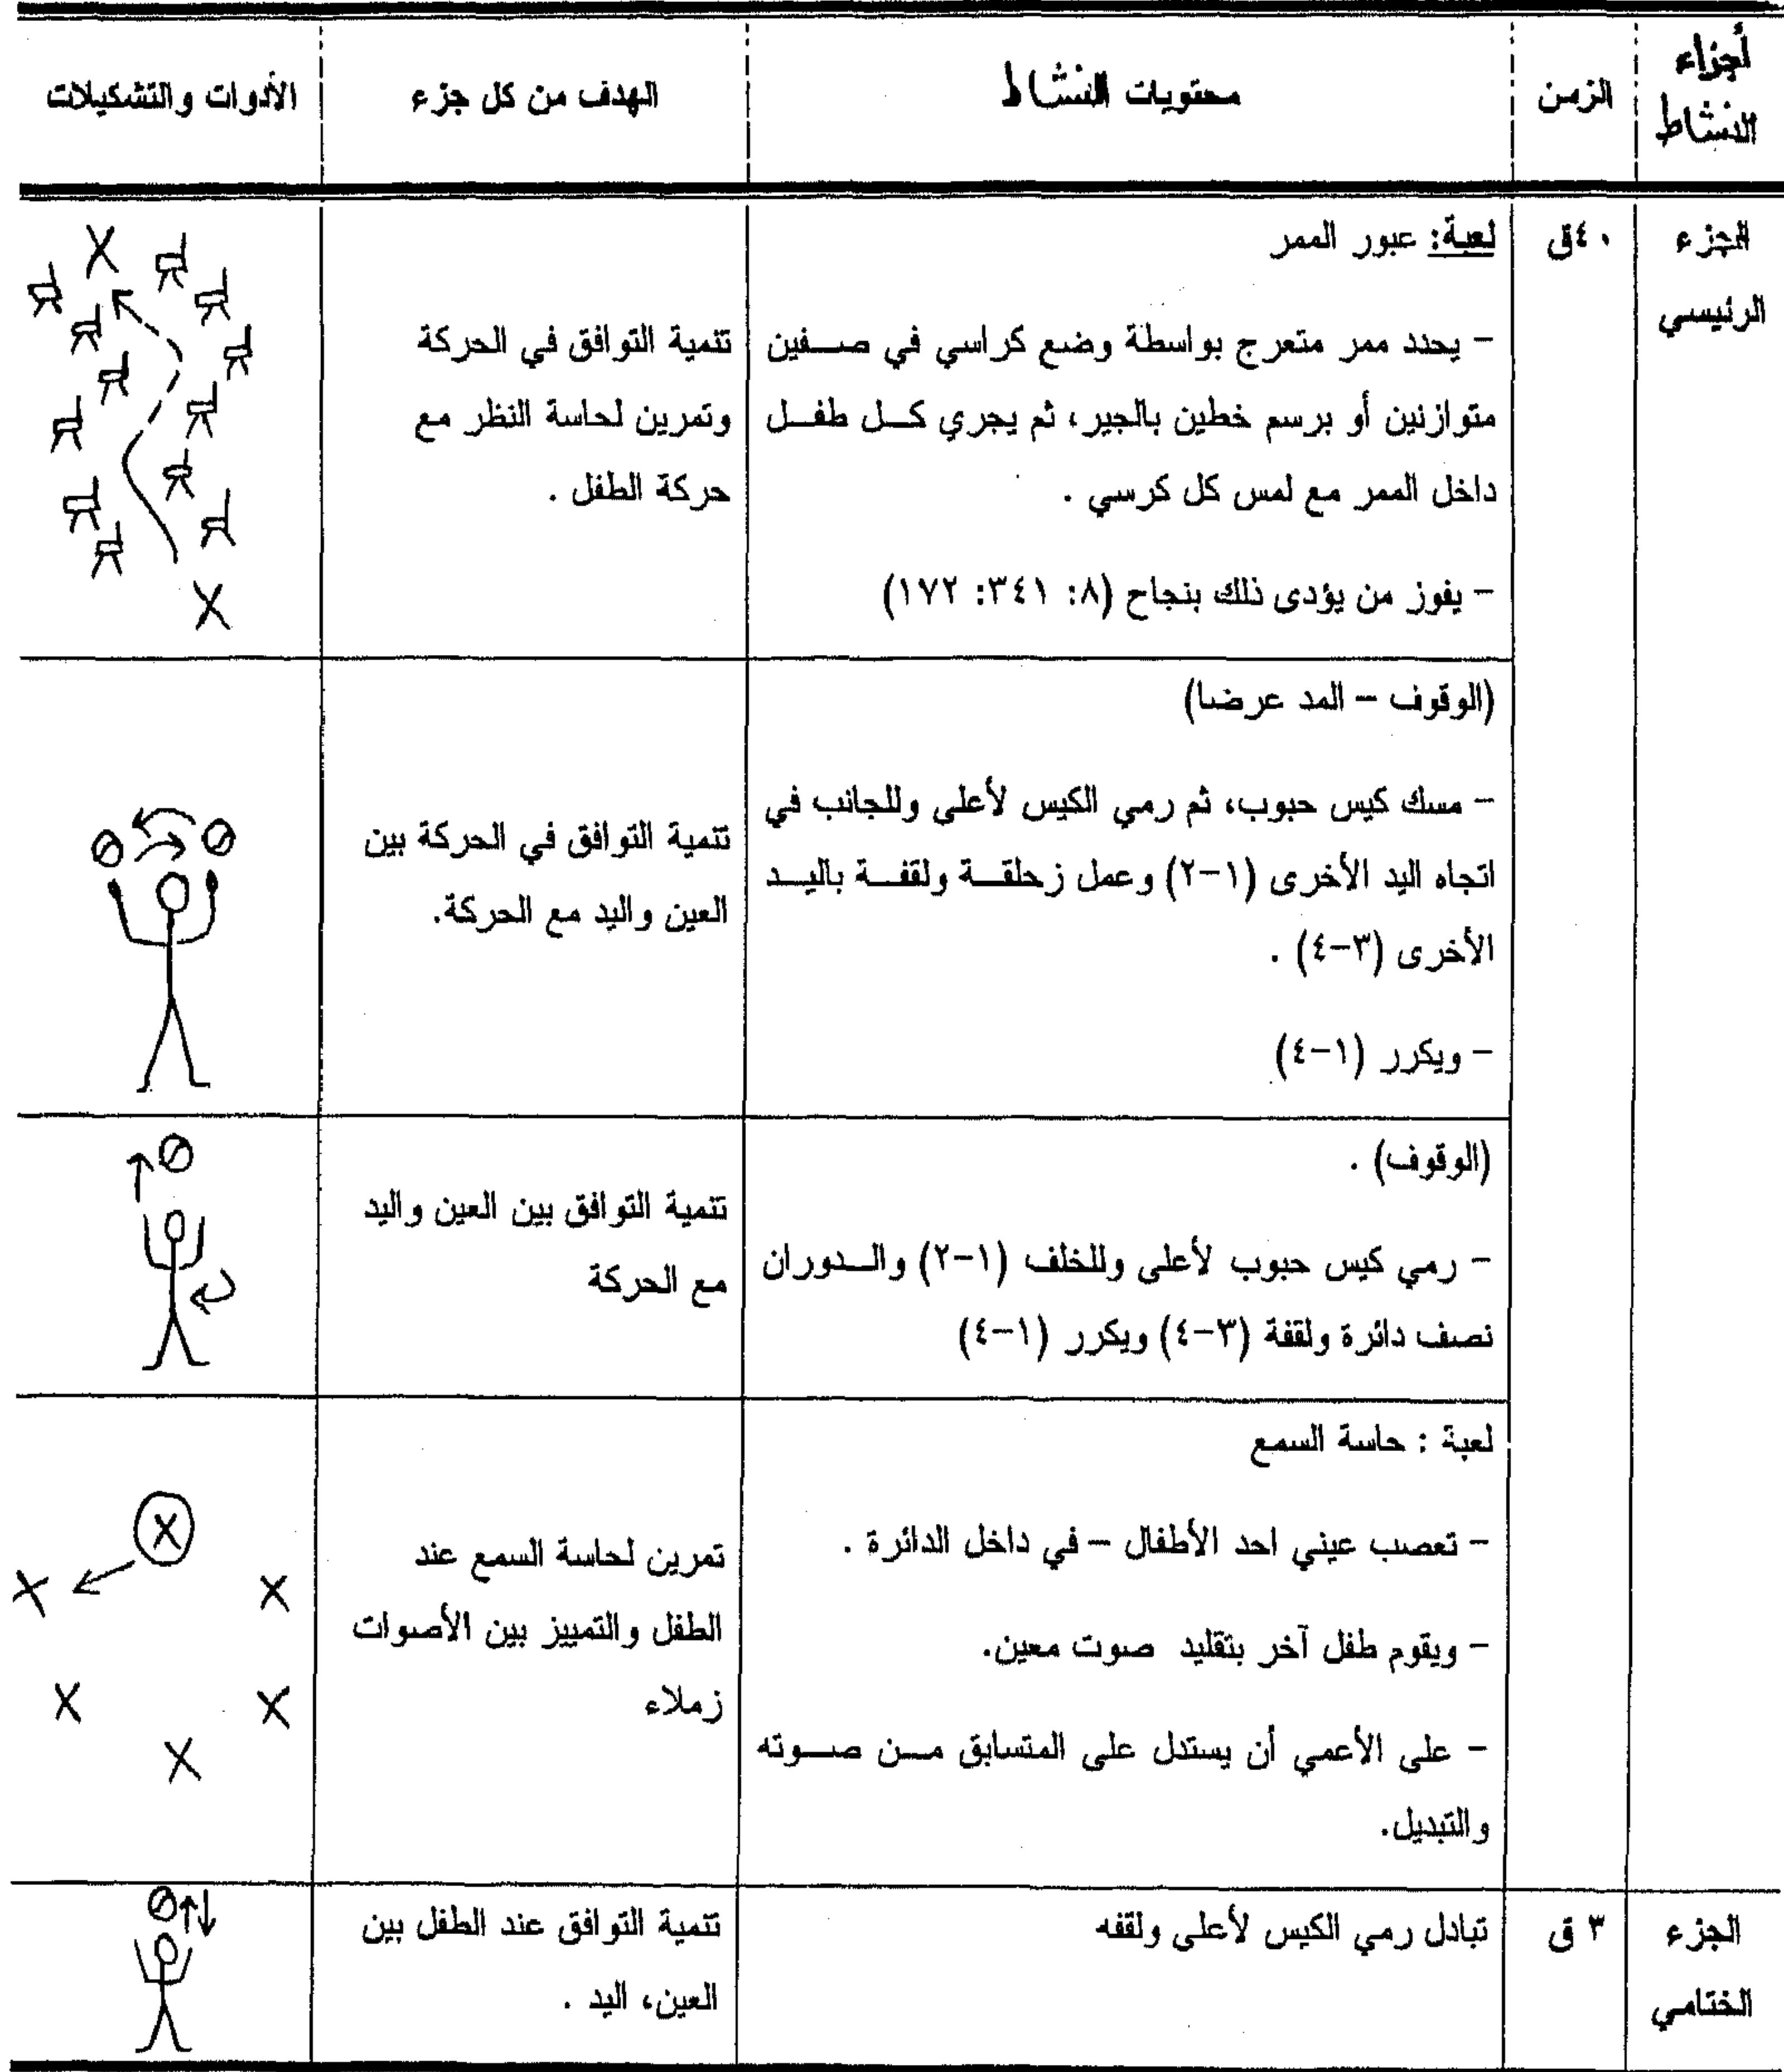 أجزاء النشاط
الزمن
محتويات النشاط
الهدف من كل جزء
الأدوات والتشكيلات
الجزء الرئيسي
٤٠ق
لعبة: عبور الممر
– يحدد ممر متعرج بواسطة وضع كراسي في صفين
متوازنين أو برسم خطين بالجير، ثم يجري كل طفل
داخل الممر مع لمس كل كرسي .
– يفوز من يؤدى ذلك بنجاح (٨: ٣٤١: ١٧٢)
تنمية التوافق في الحركة
وتمرين لحاسة النظر مع
حركة الطفل .
X
X
(الوقوف – المد عرضا)
– مسك كيس حبوب، ثم رمي الكيس لأعلى وللجانب في
اتجاه اليد الأخرى (١-٢) وعمل زحلقة ولقفة باليد
الأخرى (٣-٤) .
– ويكرر (١-٤)
تنمية التوافق في الحركة بين
العين واليد مع الحركة.
(الوقوف) .
– رمي كيس حبوب لأعلى وللخلف (١-٢) والدوران
نصف دائرة ولقفة (٣-٤) ويكرر (١-٤)
تنمية التوافق بين العين واليد
مع الحركة
لعبة : حاسة السمع
– تعصب عيني احد الأطفال – في داخل الدائرة .
– ويقوم طفل آخر بتقليد صوت معين.
– على الأعمي أن يستدل على المتسابق من صوته
والتبديل.
تمرين لحاسة السمع عند
الطفل والتمييز بين الأصوات
زملاء
X
X X
X X
X
الجزء الختامي
٣ ق
تبادل رمي الكيس لأعلى ولقفه
تنمية التوافق عند الطفل بين
العين، اليد .